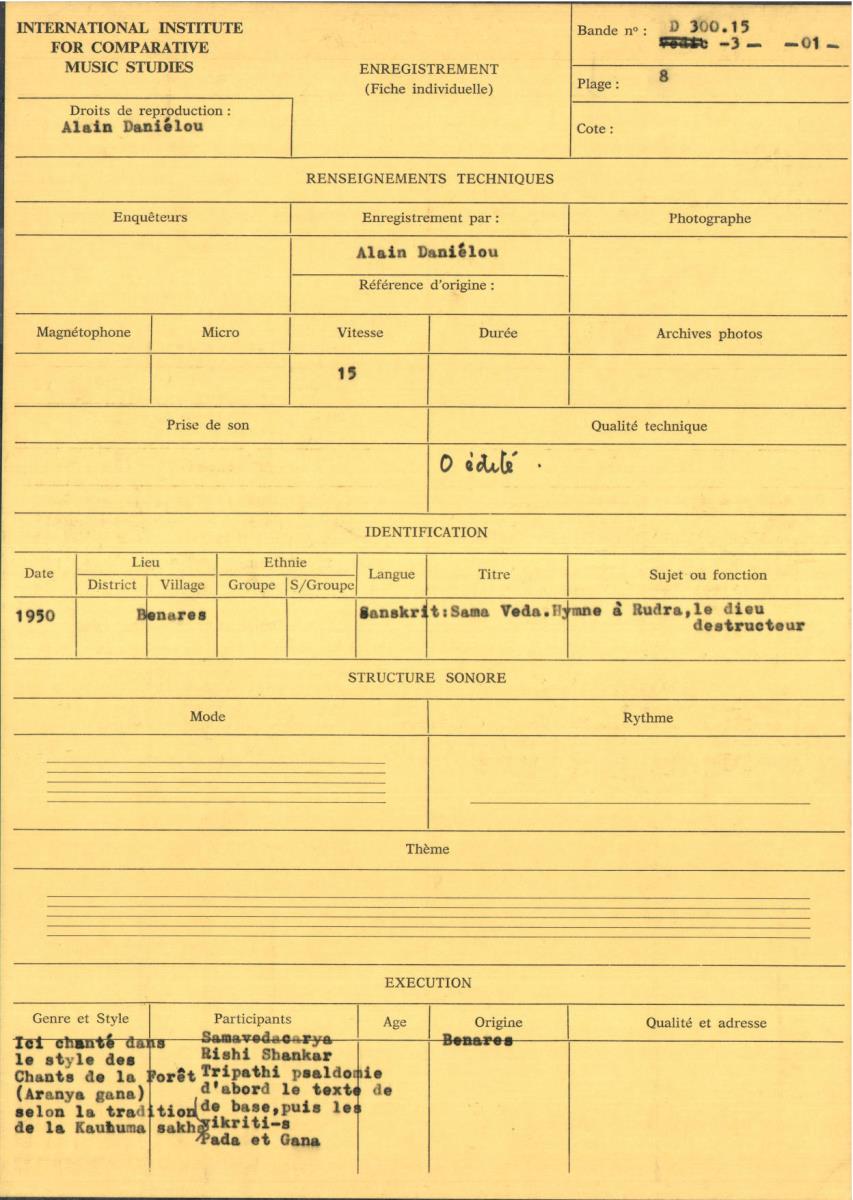 INTERNATIONAL INSTITUTE
FOR COMPARATIVE
MUSIC STUDIES
Droits de reproduction :
Alain Daniélou
ENREGISTREMENT
(Fiche individuelle)
Bande nº : D 300.15
Vedic -3 - -01 -
Plage : 8
Cote :
RENSEIGNEMENTS TECHNIQUES
Enquêteurs
Enregistrement par :
Photographe
Alain Daniélou
Référence d'origine :
Magnétophone
Micro
Vitesse
Durée
Archives photos
15
Prise de son
Qualité technique
O édité .
IDENTIFICATION
Date
Lieu
District
Village
Ethnie
Groupe
S/Groupe
Langue
Titre
Sujet ou fonction
1950
Benares
Sanskrit:Sama Veda.Hymne à Rudra,le dieu
destructeur
STRUCTURE SONORE
Mode
Rythme
Thème
EXECUTION
Genre et Style
Participants
Age
Origine
Qualité et adresse
Ici chanté dans
le style des
Chants de la Forêt
(Aranya gana)
selon la tradition
de la Kauhuma sakha
Samavedacarya
Rishi Shankar
Tripathi psaldomie
d'abord le texte de
de base,puis les
vikriti-s
Pada et Gana
Benares